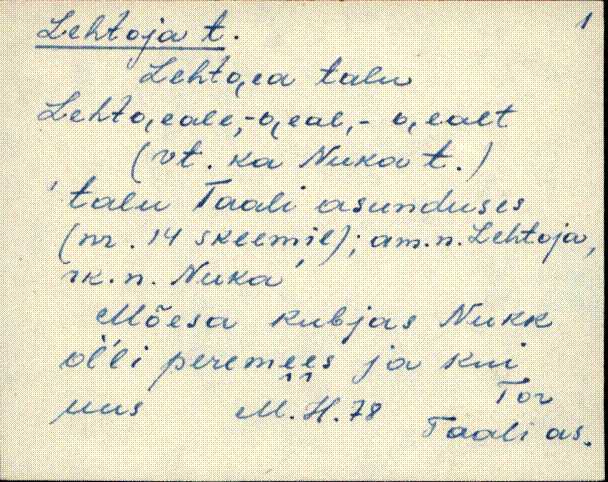 1
Lehtoja t.
Lehto̭ea talu
Lehto̭eale, -o̭eal, -o̭ealt
(vt. ka Nuka t.)
'talu Taali asunduses
(nr. 14 skeemil); am.n. Lehtoja,
rk.n. Nuka'
Mõesa kubjas Nukk
oĺĺi peremees ja kui
uus M. H. 78 Tor
Taali as.